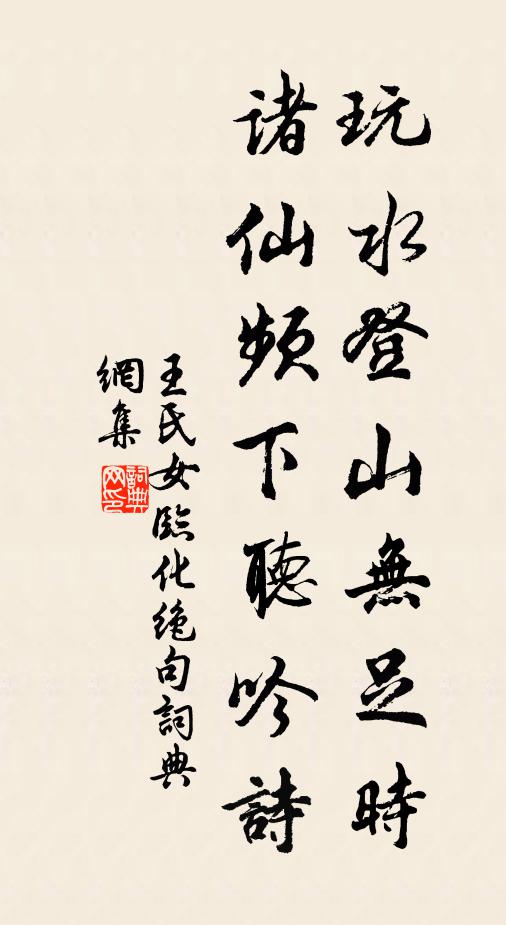 玩水登山無足時
諸仙頻下聽吟詩
王氏女臨化絶句詞典
網集
詞典
网印